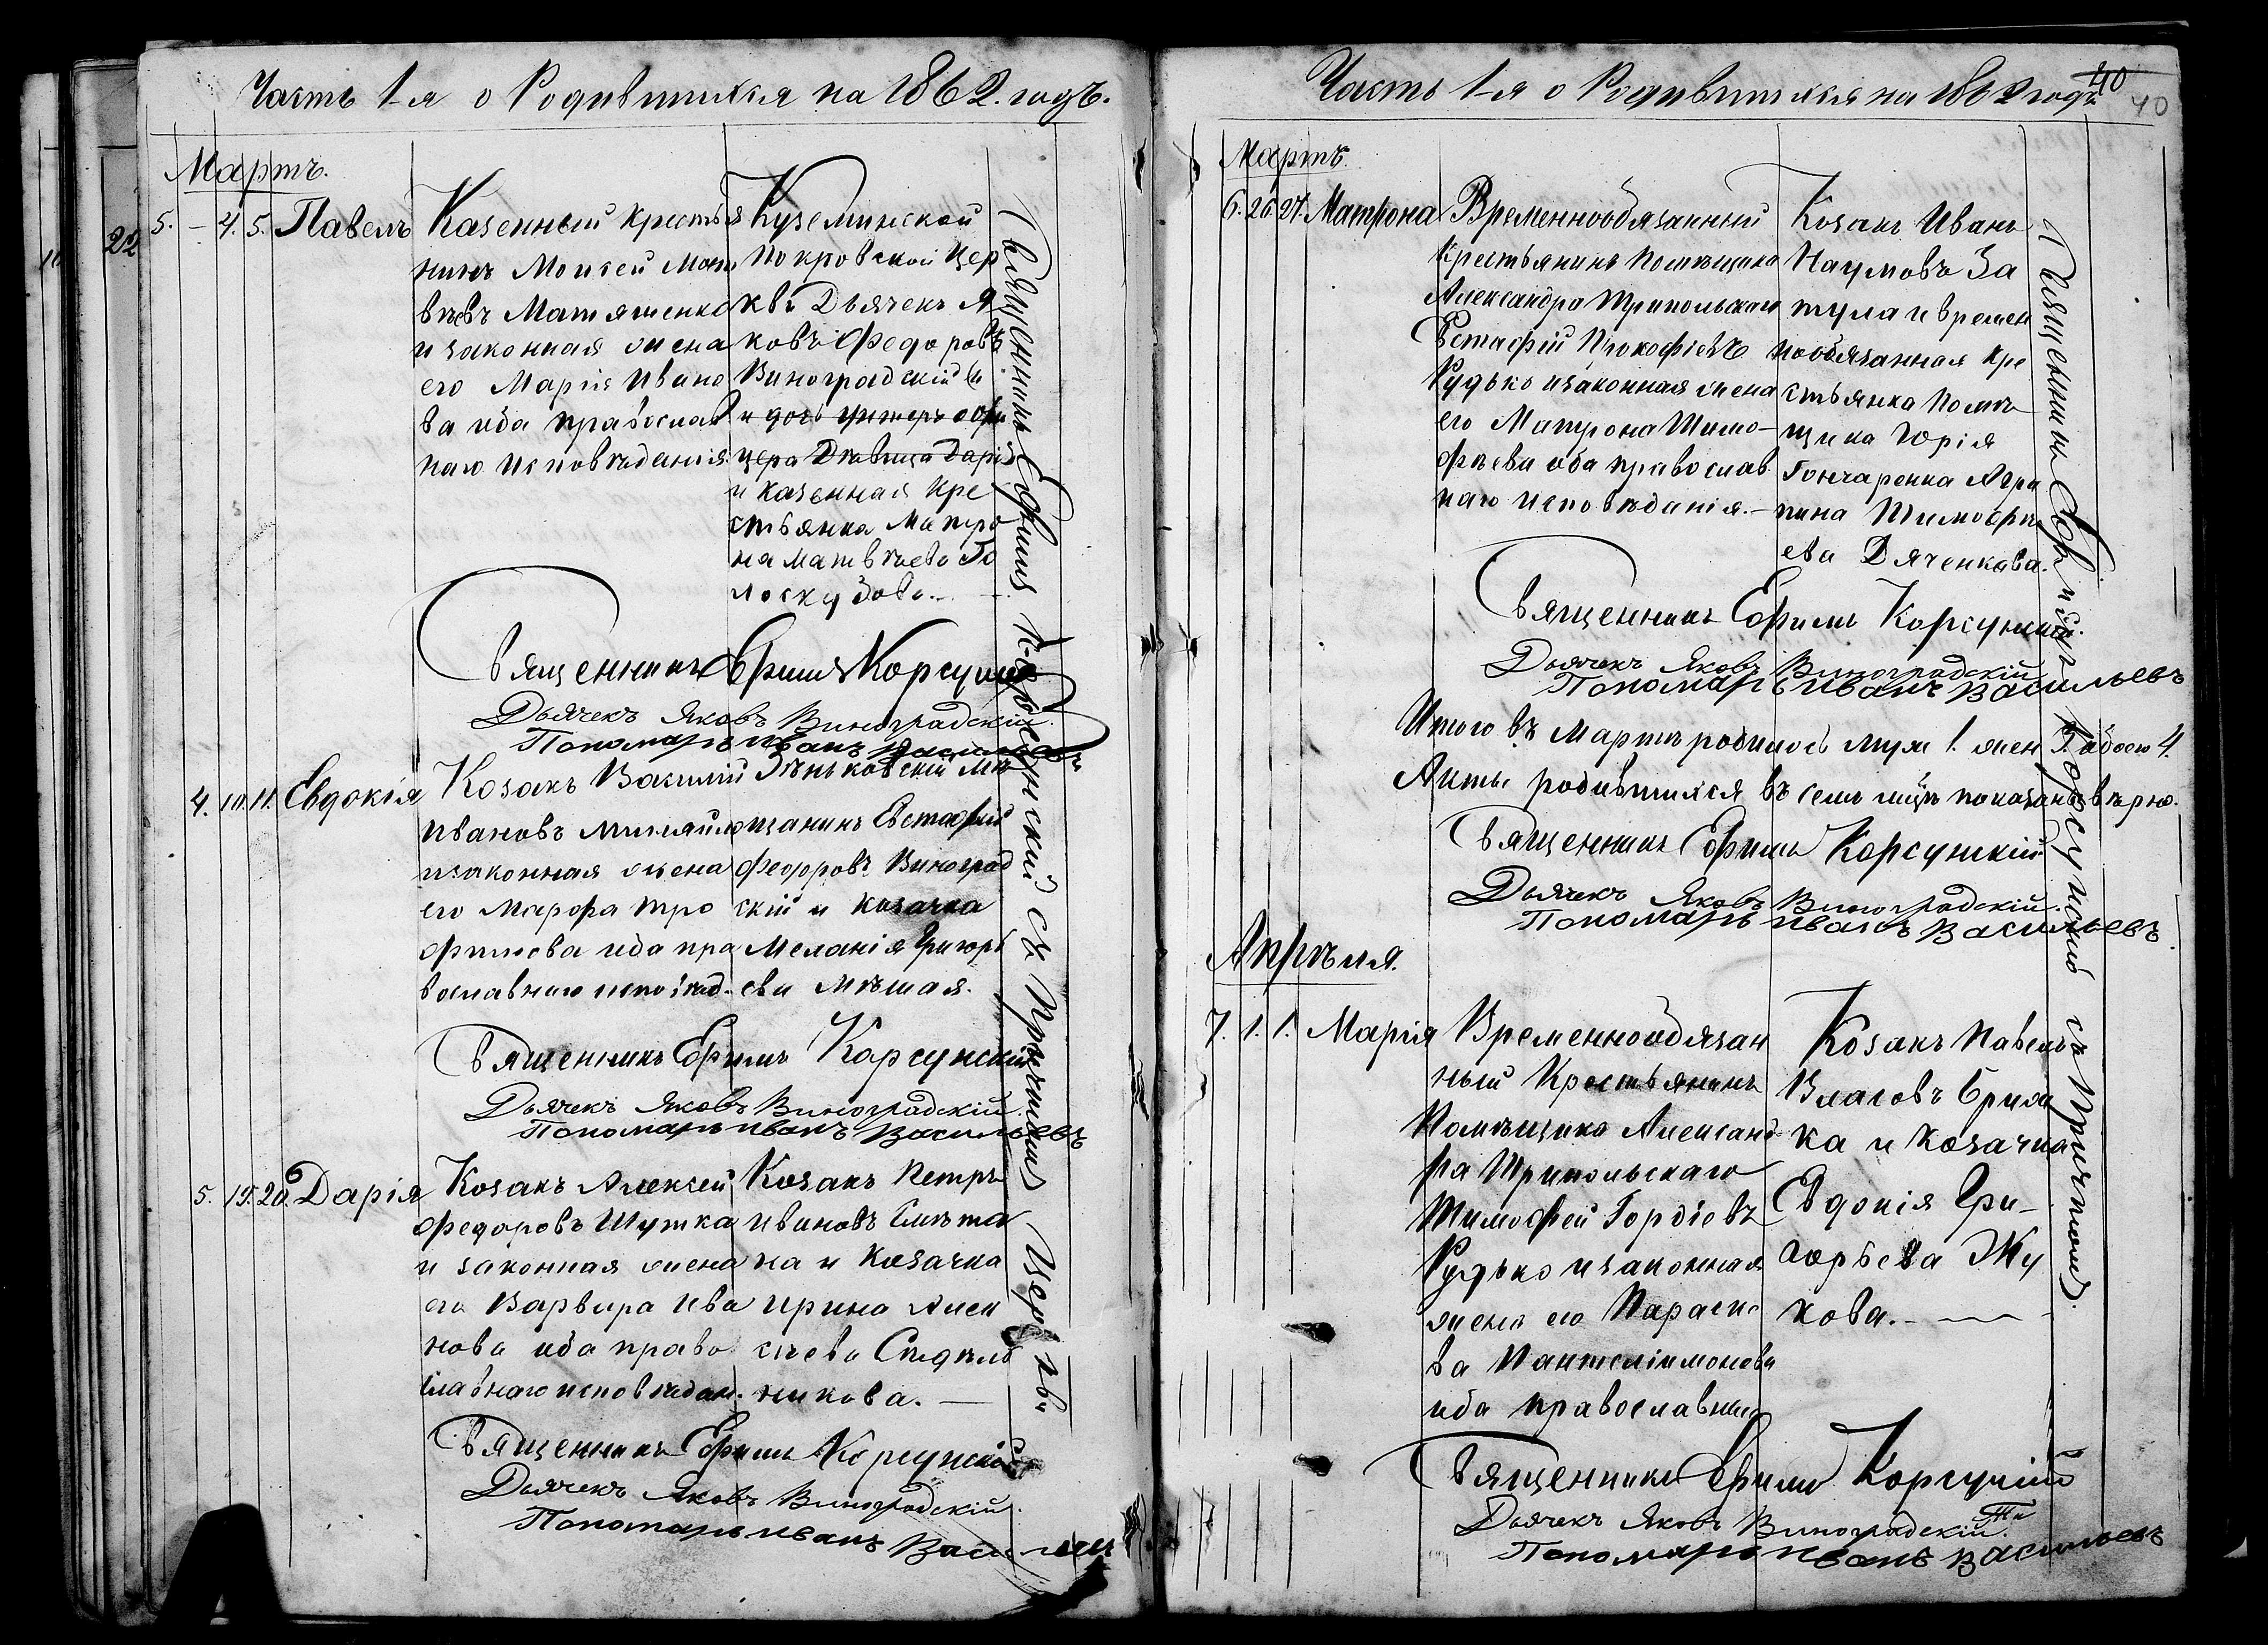 Часть 1-я о Родившихся на 1862. годъ.
Мартъ.
22
5. – 4. 5. Павелъ
Казенный крестья
нинъ Моисей Мат
вѣевъ Матяшенко
и законная жена
его Марія Ивано
ва оба православ
наго исповѣданія
Куземинской
Покровской Цер
кви Дьячекъ Я
ковъ Федоровъ
Виноградскій и
и дочь унтеръ офи
цера Дѣвица Дарія
и казенная кре
стьянка Матро
на Матвѣева Го
лоскубова.
Священникъ Ефимъ Корсунскій
Дьячекъ Яковъ Виноградскій.
Пономарь Иванъ Васильевъ
4. 10. 11. Евдокія
Козакъ Василій
Ивановъ
и законная жена
его Марфа Тро
фимова оба пра
вославнаго исповѣд.
Зѣньковскій мѣ
щанинъ Евстафій
Феодоровъ Виноград
скій и козачка
Меланія Григорь
ева
Священникъ Ефимъ Корсунскій
Дьячекъ Яковъ Виноградскій.
Пономарь Иванъ Васильевъ
5. 19. 20. Дарія
Козакъ Алексѣй
Федоровъ Шутка
и законная жена
его Варвара Ива
нова оба право
славнаго исповѣдан.
Козакъ Петръ
Ивановъ Смѣта
на и козачка
Ирина Алек
сѣева
никова.
Священникъ Ефимъ Корсунскій
Дьячекъ Яковъ Виноградскій.
Пономарь Иванъ Васильевъ
Священникъ Ефимъ Корсунскій съ Причтомъ Церкви
Часть 1-я о Родившихся на 1862 годъ
40
40
Мартъ.
6. 26. 27. Матрона
Временнообязанный
Крестьянинъ Помѣщика
Александра Трипольскаго
Евстафій Прокофіевъ
Рудько и законная жена
его Матрона Тимо-
фѣева оба православ
наго исповѣданія.
Козакъ Иванъ
Наумовъ За
тула и времен
нообязанная кре
стьянка помѣ
щика Юрія
Гончаренка Агри
пина Тимофѣ
ева Дяченкова.
Священникъ Ефимъ Корсунскій.
Дьячекъ Яковъ Виноградскій
Пономарь Иванъ Васильевъ
Итого въ Мартѣ родилось муж 1. жен 3. обоего 4.
Акты родившихся въ семъ мцѣ показаны вѣрно.
Священникъ Ефимъ Корсунскій
Дьячекъ Яковъ Виноградскій.
Пономарь Иванъ Васильевъ.
Апрѣля.
7. 1. 1. Марія
Временнообязан
ный Крестьянинъ
Помѣщика Александ
ра Трипольскаго
Тимофей Гордіевъ
Рудько и законная
жена его Параске
ва Пантелімонова
оба православнаго
Козакъ Павелъ
Власовъ Брил
ка и козачка
Евдокія Гри-
горьева Жу
кова.
Священникъ Ефимъ Корсунскій
Дьячекъ Яковъ Виноградскій.
Пономарь Иванъ Васильевъ
Священникъ Ефимъ Корсунскій съ Причтомъ.